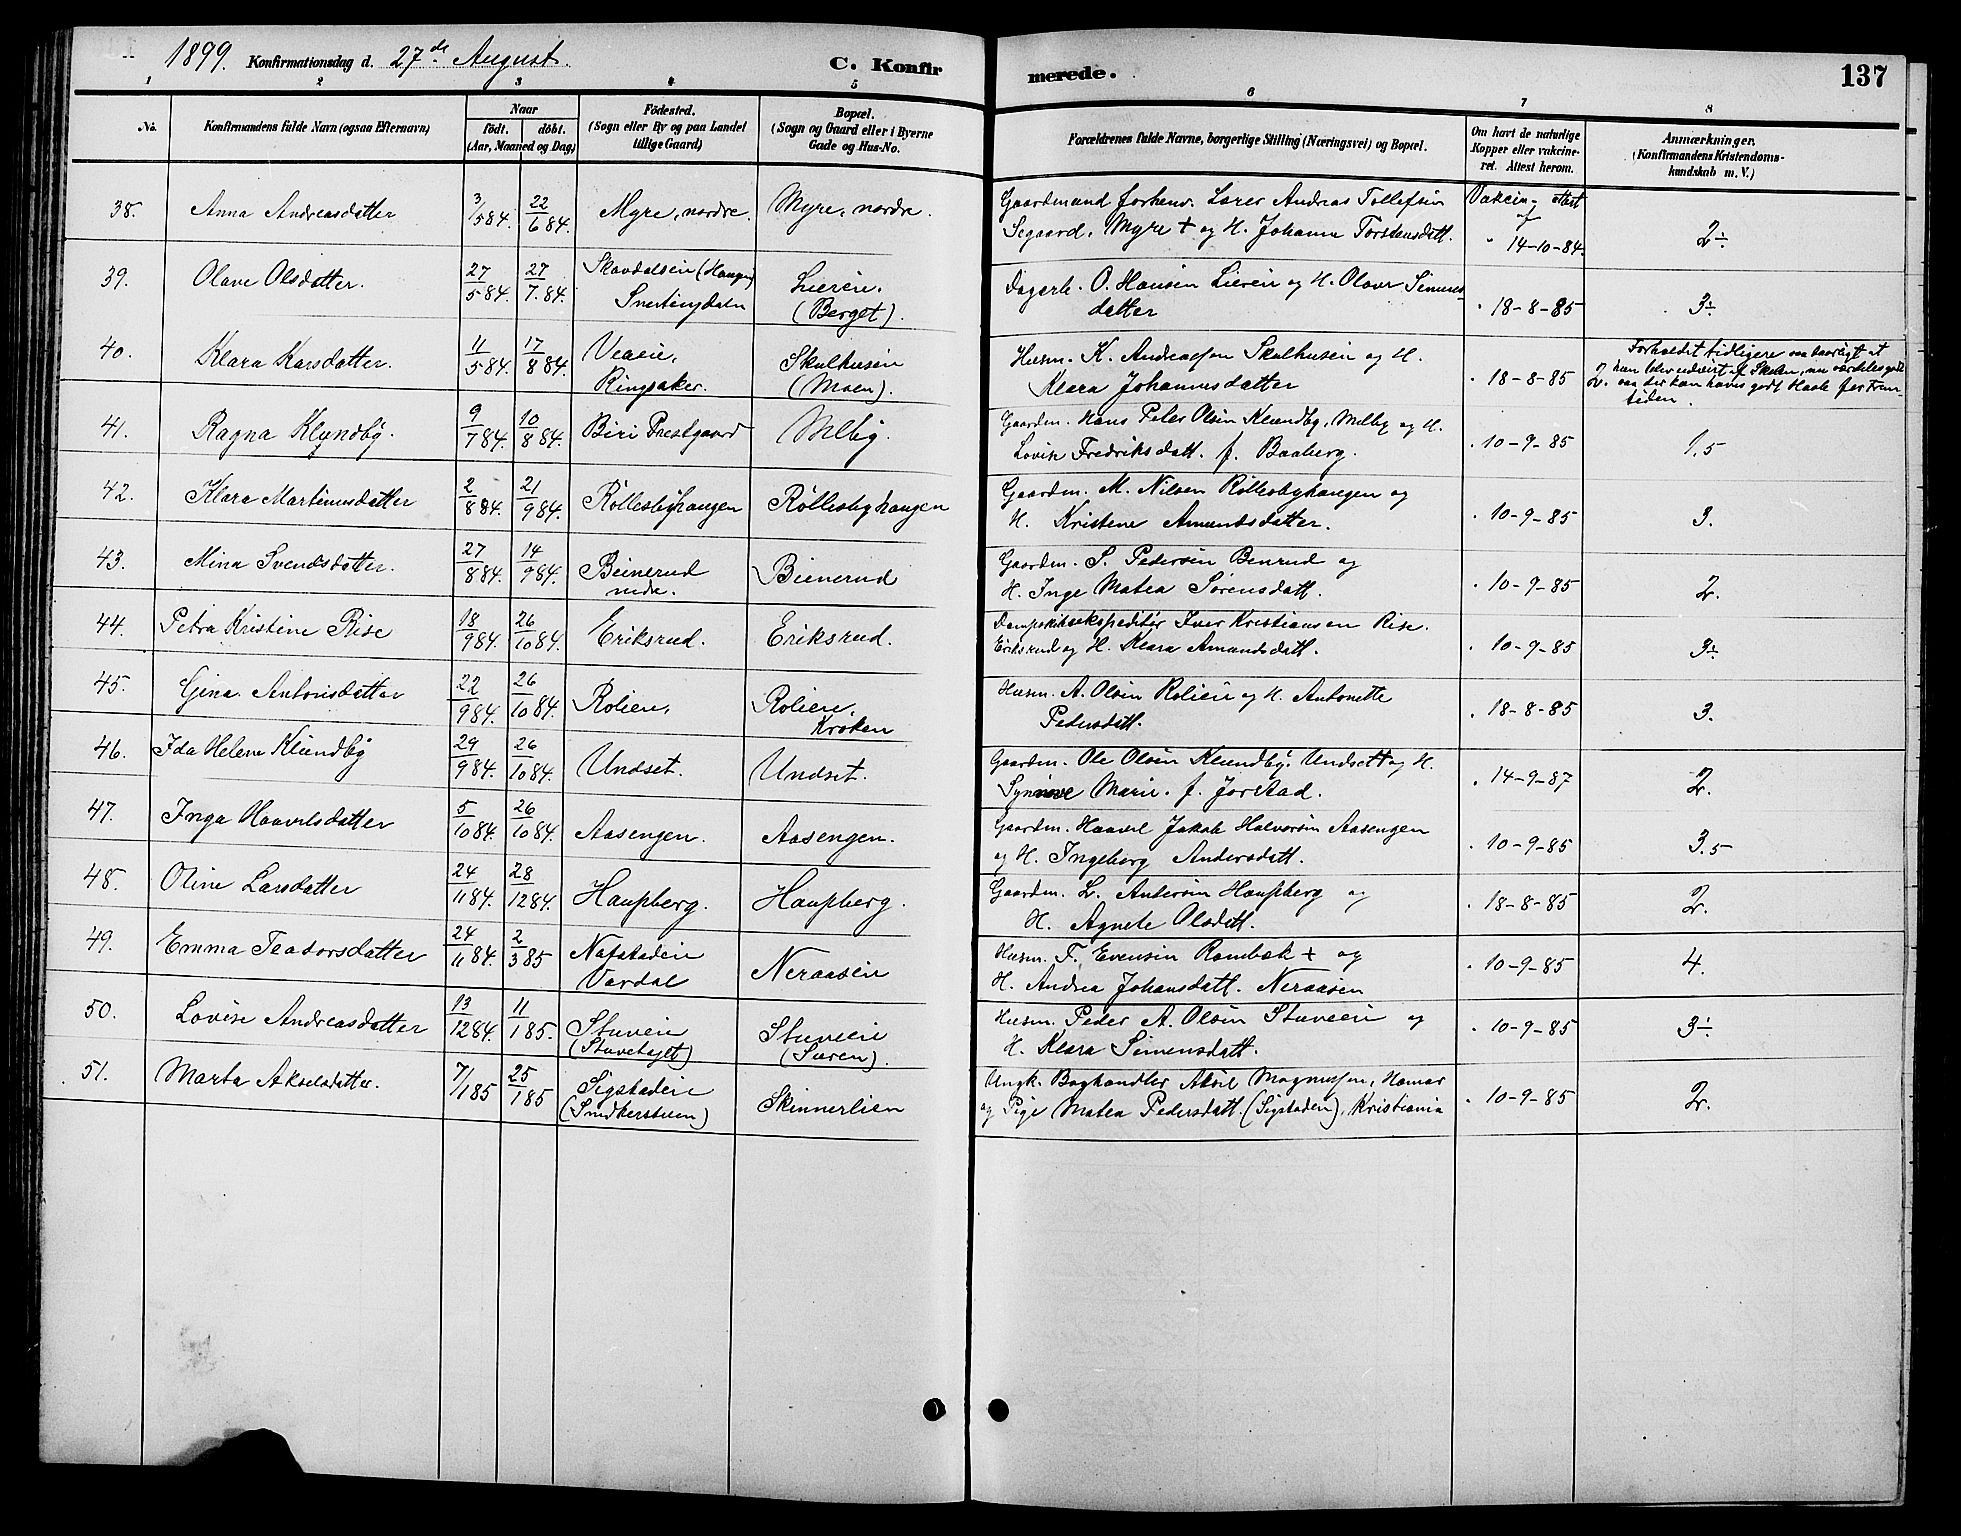 1899. Konfirmationsdag d. 27de August. C. Konfir merede. 137
1 2 3 4 5 6 7 8
No. Konfirmandens fulde Navn (ogsaa Efternavn) Naar födt. döbt. (Aar, Maaned og Dag) Födested. (Sogn eller By og paa Landet tillige Gaard) Bopæl. (Sogn og Gaard eller i Byerne Gade og Hus-No. Forældrenes fulde Navne, borgerlige Stilling (Næringsvei) og Bopæl. Om havt de naturlige Kopper eller vakcineret. Attest herom. Anmærkninger. (Konfirmandens Kristendomskundskab m. V.)
38. Anna Andreasdatter 3/5 84. 22/6 84. Myre, nordre. Myre, nordre. Gaardmand forhenv. Lærer Andreas Tollefsen
Segaard, Myre + og H. Johanne Torstensdatt. Vakcin. attest af 14-10-84. 2÷
39. Olave Olsdatter. 27/5 84. 27/7 84. Skavdalseie (Haugen)
Snertingdalen Liereie.
(Berget). Dagarb. O. Hansen Liereie og H. Olave Simens-
datter 18-8-85 3÷
40. Klara Karsdatter. 11/5 84. 17/8 84. Veaeie,
Ringsaker. Skulhuseie
(Moen). Husm. K. Andreassen Skulhuseie og H.
Klara Johannesdatter 18-8-85 2. Forholdt tidligere saa daarligt at
han blev udvist af Skolen, nu
saa der kan haves godt Haab for Frem-
tiden.
41. Ragna Klundby. 9/7 84. 10/8 84. Biri Prestgaard Melby Gaardm. Hans Peter Olsen Klundby, Melby og H.
Lovise Fredriksdatt. f. Baaberg. 10-9-85 1,5
42. Klara Martinusdatter 2/8 84. 21/9 84. Røllesbyhaugen Røllesbyhaugen Gaardm. M. Nilsen Røllesbyhaugen og
H. Kristene Amundsdatter. 10-9-85 3.
43. Mina Svendsdatter. 27/8 84. 14/9 84. Beinerud
nedre. Beinerud Gaardm. S. Pedersen Benrud og
H. Inge Matea Sørensdatt. 10-9-85 2.
44. Petra Kristine Rise 18/9 84. 26/10 84. Eriksrud. Eriksrud. Dampskibsekspeditør Iver Kristiansen Rise.
Eriksrud og H. Klara Amundsdatt. 10-9-85 3÷
45. Gina Antonsdatter 22/9 84. 26/10 84. Rolieie, Rolieie,
Kroken Husm. A. Olsen Rolieie og H. Antonette
Pedersdatt. 18-8-85 3.
46. Ida Helene Klundby 29/9 84. 26/10 84. Undset. Undset. Gaardm. Ole Olsen Klundby, Undsett og H.
Synnøve Marie. f. Jørstad. 14-9-87 2.
47. Inga Haavelsdatter 5/10 84. 26/10 84. Aasengen. Aasengen. Gaardm. Haavel Jakob Halvorsen Aasengen
og H. Ingeborg Andersdatt. 10-9-85 3.5
48. Oline Larsdatter 24/11 84. 28/12 84. Haupberg. Haupberg. Gaardm. L. Andersen Haupberg og
H. Agnete Olsdatt. 18-8-85 2.
49. Emma Teodorsdatter 24/11 84. 2/3 85 Nafstadeie
Vardal Neraaseie Husm. T. Evensen Rambæk + og
H. Andrea Johansdatt. Neraasen 10-9-85 4.
50. Lovise Andreasdatter 13/12 84. 11/1 85. Stuveie Stuveie
Husm. Peder A. Olsen Stuveeie og
H. Klara Simensdatt. 10-9-85 3÷
51. Marta Akselsdatter. 7/1 85 25/1 85 Sigstadeie
(Snekkerstuen) Skinnerlien Ungk. Boghandler Aksel Magnussen, Hamar
og Pige Matea Pedersdatt. (Sigstaden), Kristiania 10-9-85 2.